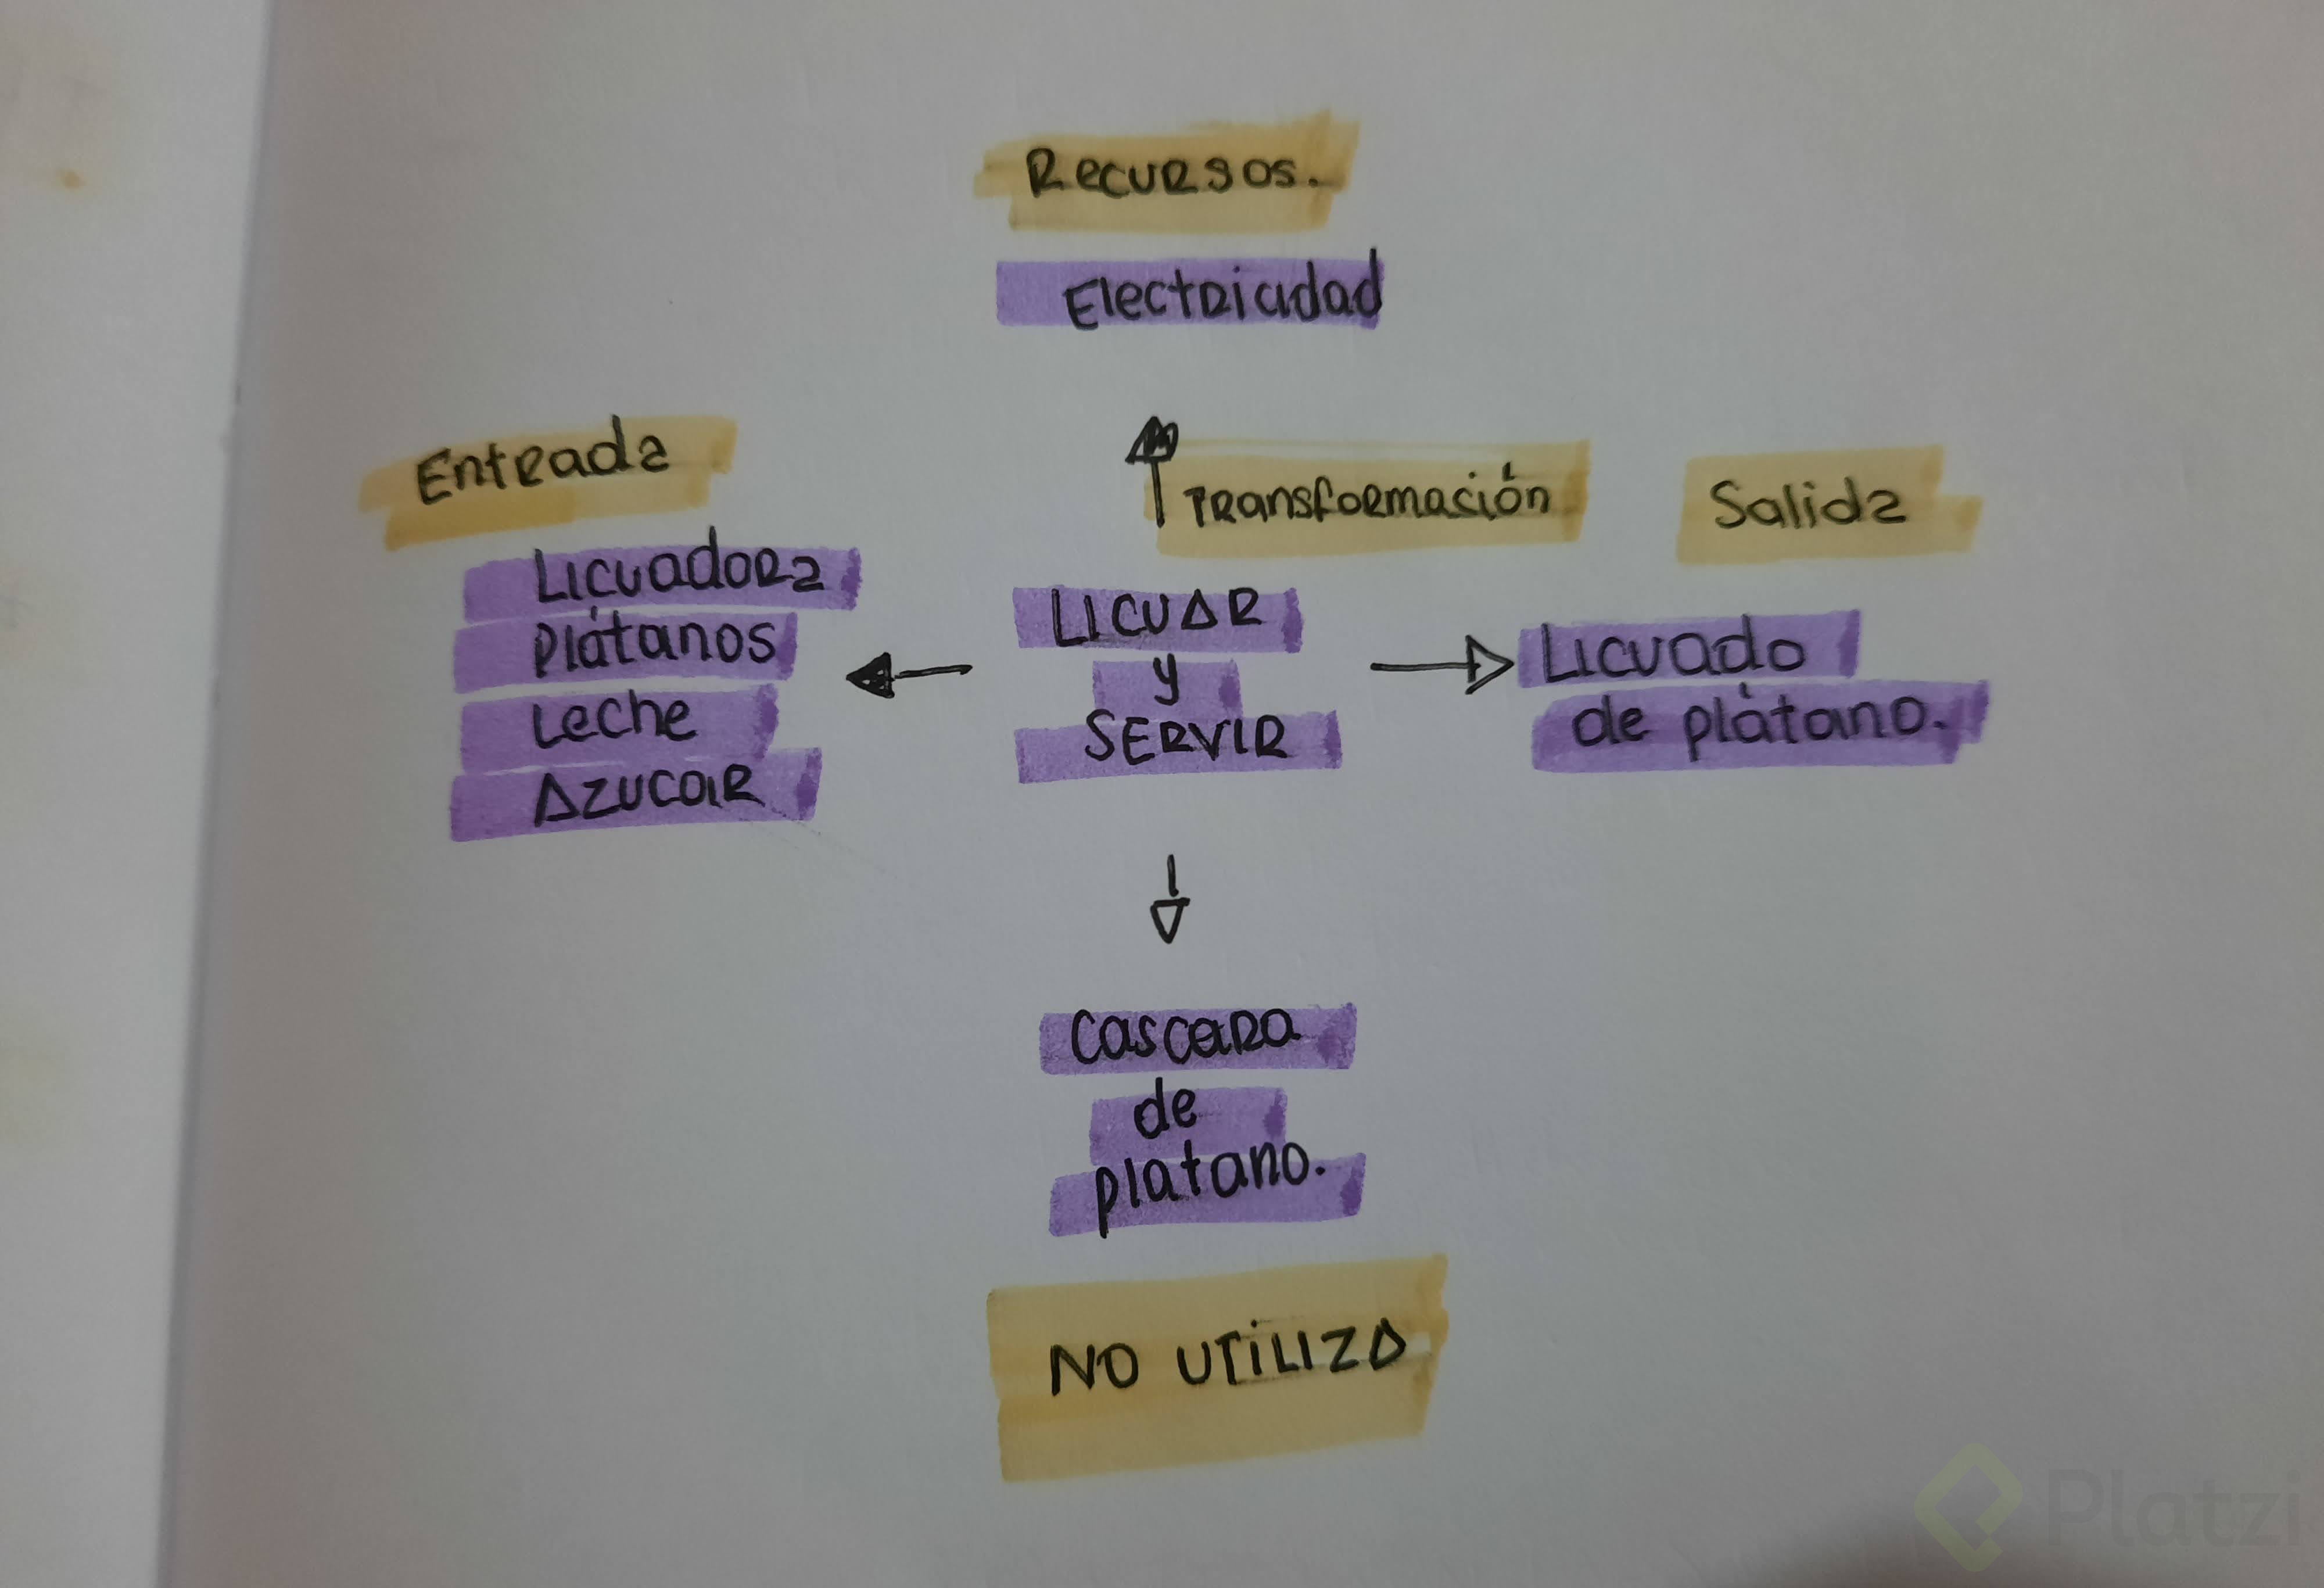 Recursos.
Electricidad
Entrada
Transformación
Salida
Licuadora
plátanos
Leche
Azucar
LICUAR
y
SERVIR
Licuado
de plátano.
Cascara
de
platano.
NO UTILIZA
Platzi